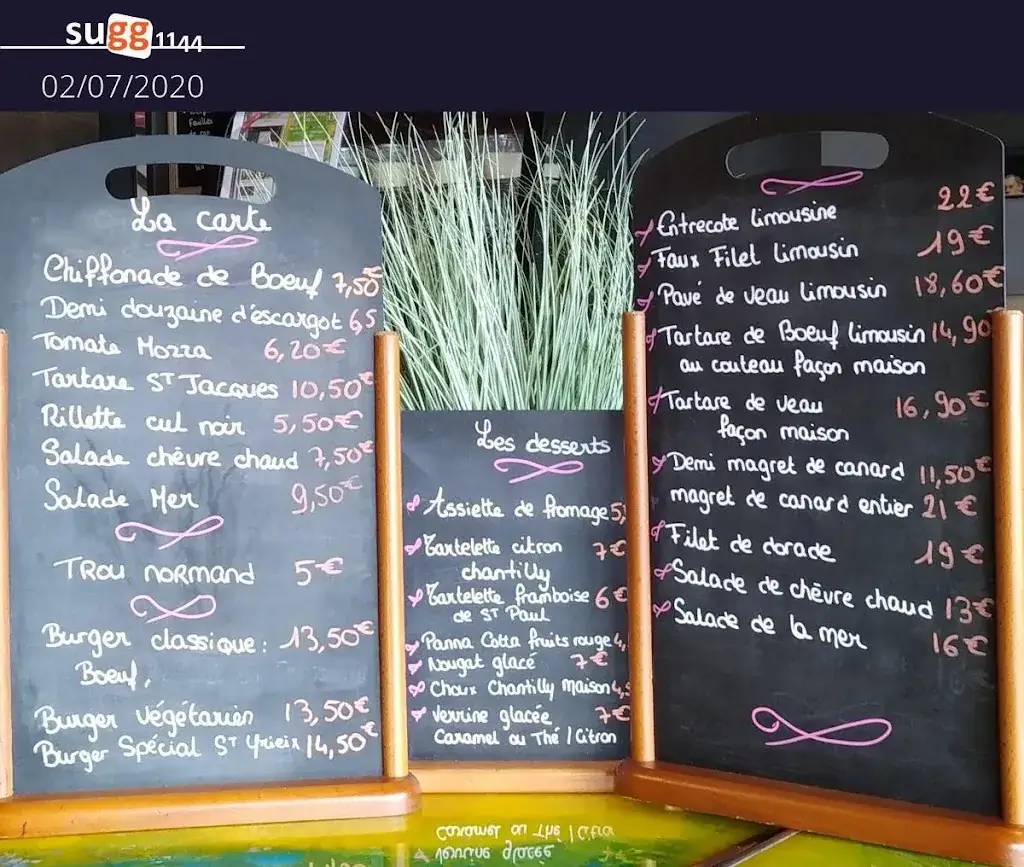 sugg1144
02/07/2020
La carte
Chiffonade de Boeuf 7,50€
Demi douzaine d'escargot 6,5
Tomate Mozza 6,20€
Tartare ST Jacques 10,50€
Rillette cul noir 5,50€
Salade chèvre chaud 7,50€
Salade Mer 9,50€
TROU NORMAND 5€
Burger classique : 13,50€
Boeuf,
Burger végétarien 13,50€
Burger Spécial ST Yrieix 14,50€
Les desserts
Assiette de fromage 5,
Tartelette citron 7€
chantilly
Tartelette framboise 6€
de ST Paul
Panna Cotta fruits rouge 4,
Nougat glacé 7€
Choux Chantilly Maison 4,5
Verrine glacée 7€
Caramel ou Thé / Citron
Entrecote limousine 22€
Faux Filet limousin 19€
Pavé de veau limousin 18,60€
Tartare de Boeuf limousin 14,90
au couteau façon maison
Tartare de veau 16,90€
façon maison
Demi magret de canard 11,50€
magret de canard entier 21€
Filet de dorade 19€
Salade de chèvre chaud 13€
Salade de la mer 16€